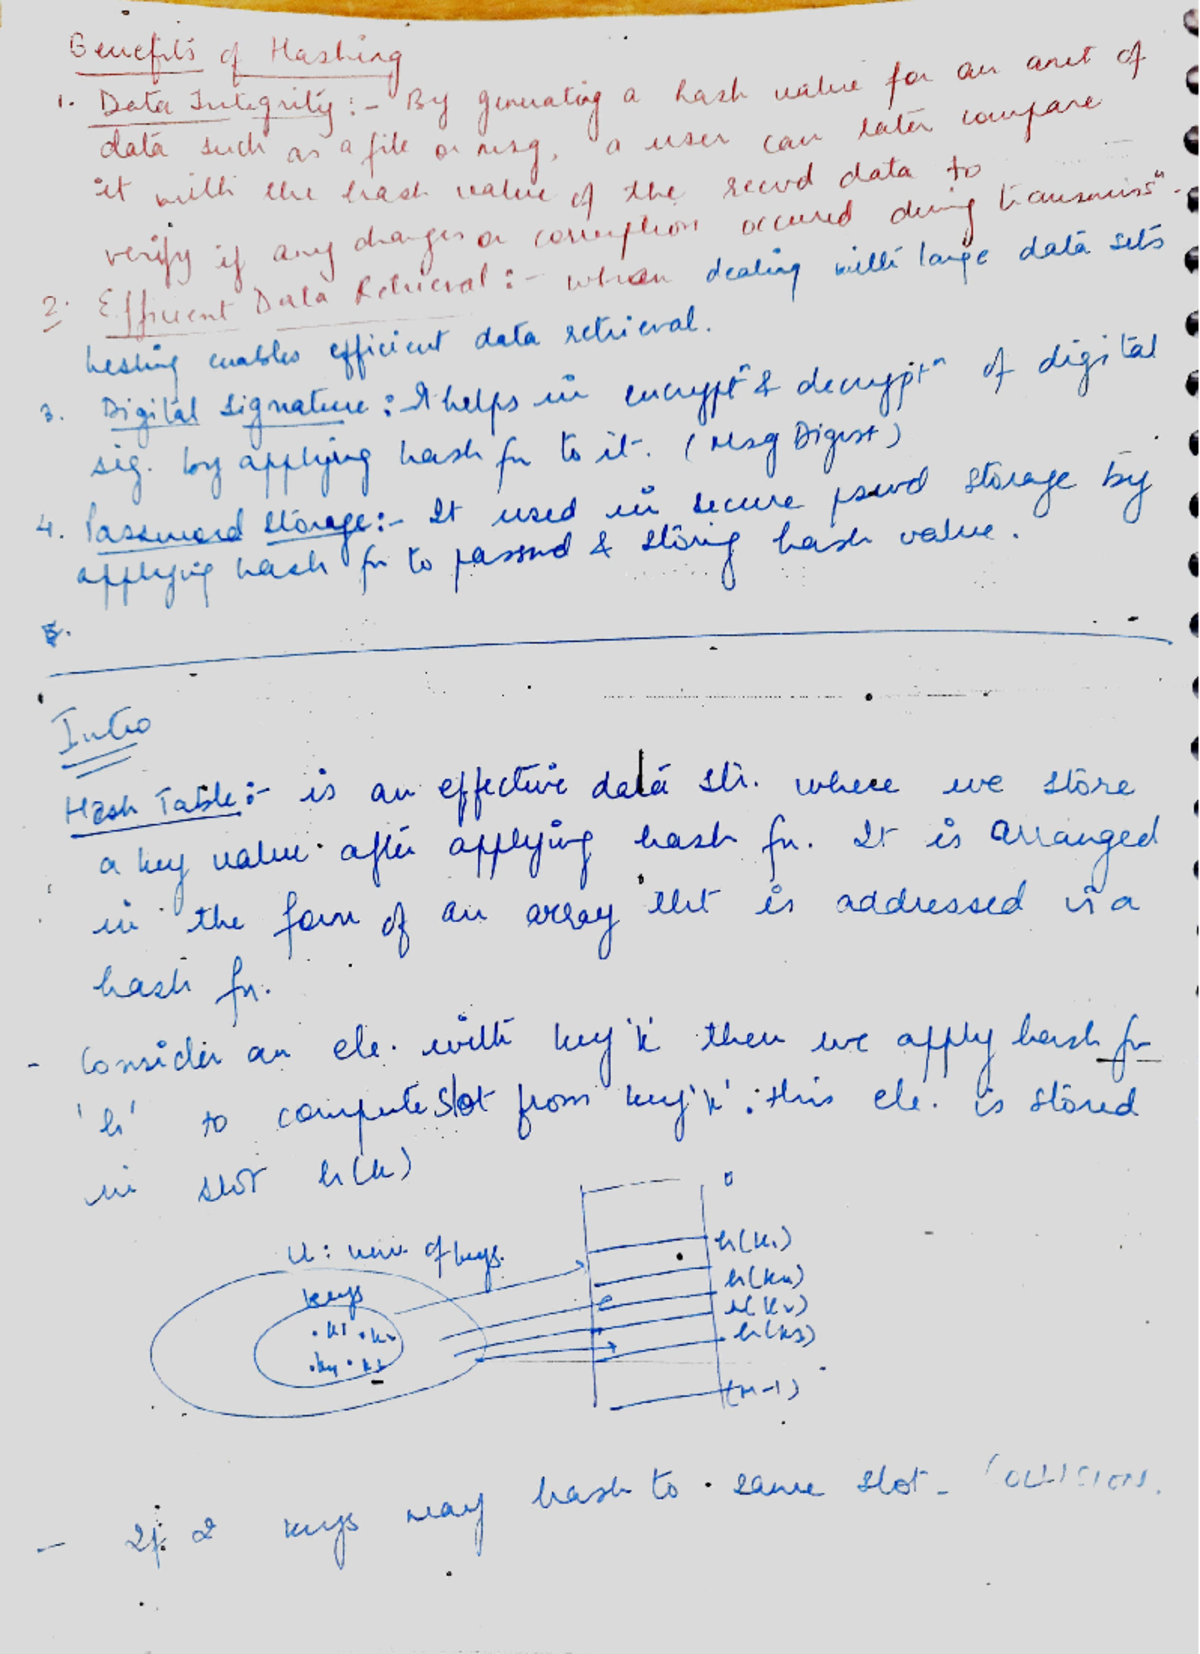 Benefits of Hashing
1. Data Integrity :- By generating a hash value for an amt of
data such as a file or msg, a user can later compare
it with the hash value of the recvd data to
verify if any changes or corruption occured during transmissn.
2. Efficient Data Retrieval :- when dealing with large data sets
hashing enables efficient data retrieval.
3. Digital Signature : It helps in encryptn & decryptn of digital
sig. by applying hash fn to it. (Msg Digest)
4. Password Storage :- It used in secure pswd storage by
applying hash fn to passwd & storing hash value.
5.
Intro
Hash Table :- is an effective data str. where we store
a key value after applying hash fn. It is arranged
in the form of an array tht is addressed via
hash fn.
- Consider an ele. with key 'k' then we apply hash fn
'h' to compute slot from key 'k'. : this ele. is stored
in slot h(k)
0
U : univ. of keys.
h(k1)
keys
h(k4)
.k1 .k2
h(k2)
.k4 .k3
h(k3)
(m-1)
- If 2 keys may hash to same slot - COLLISION.